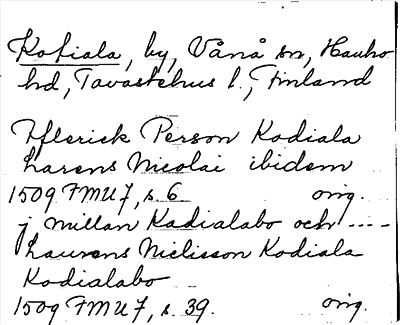 Kofiala, by, Vånå sn, Hauho
hd, Tavastehus l., Finland
Iflerick Person Kodiala
Larens Nicolai ibidem
1509 FMU 7, s. 6 orig.
j millan Kadialabo och -----
Laurens Niclisson Kodiala
Kodialabo
1509 FMU 7, s. 39. orig.